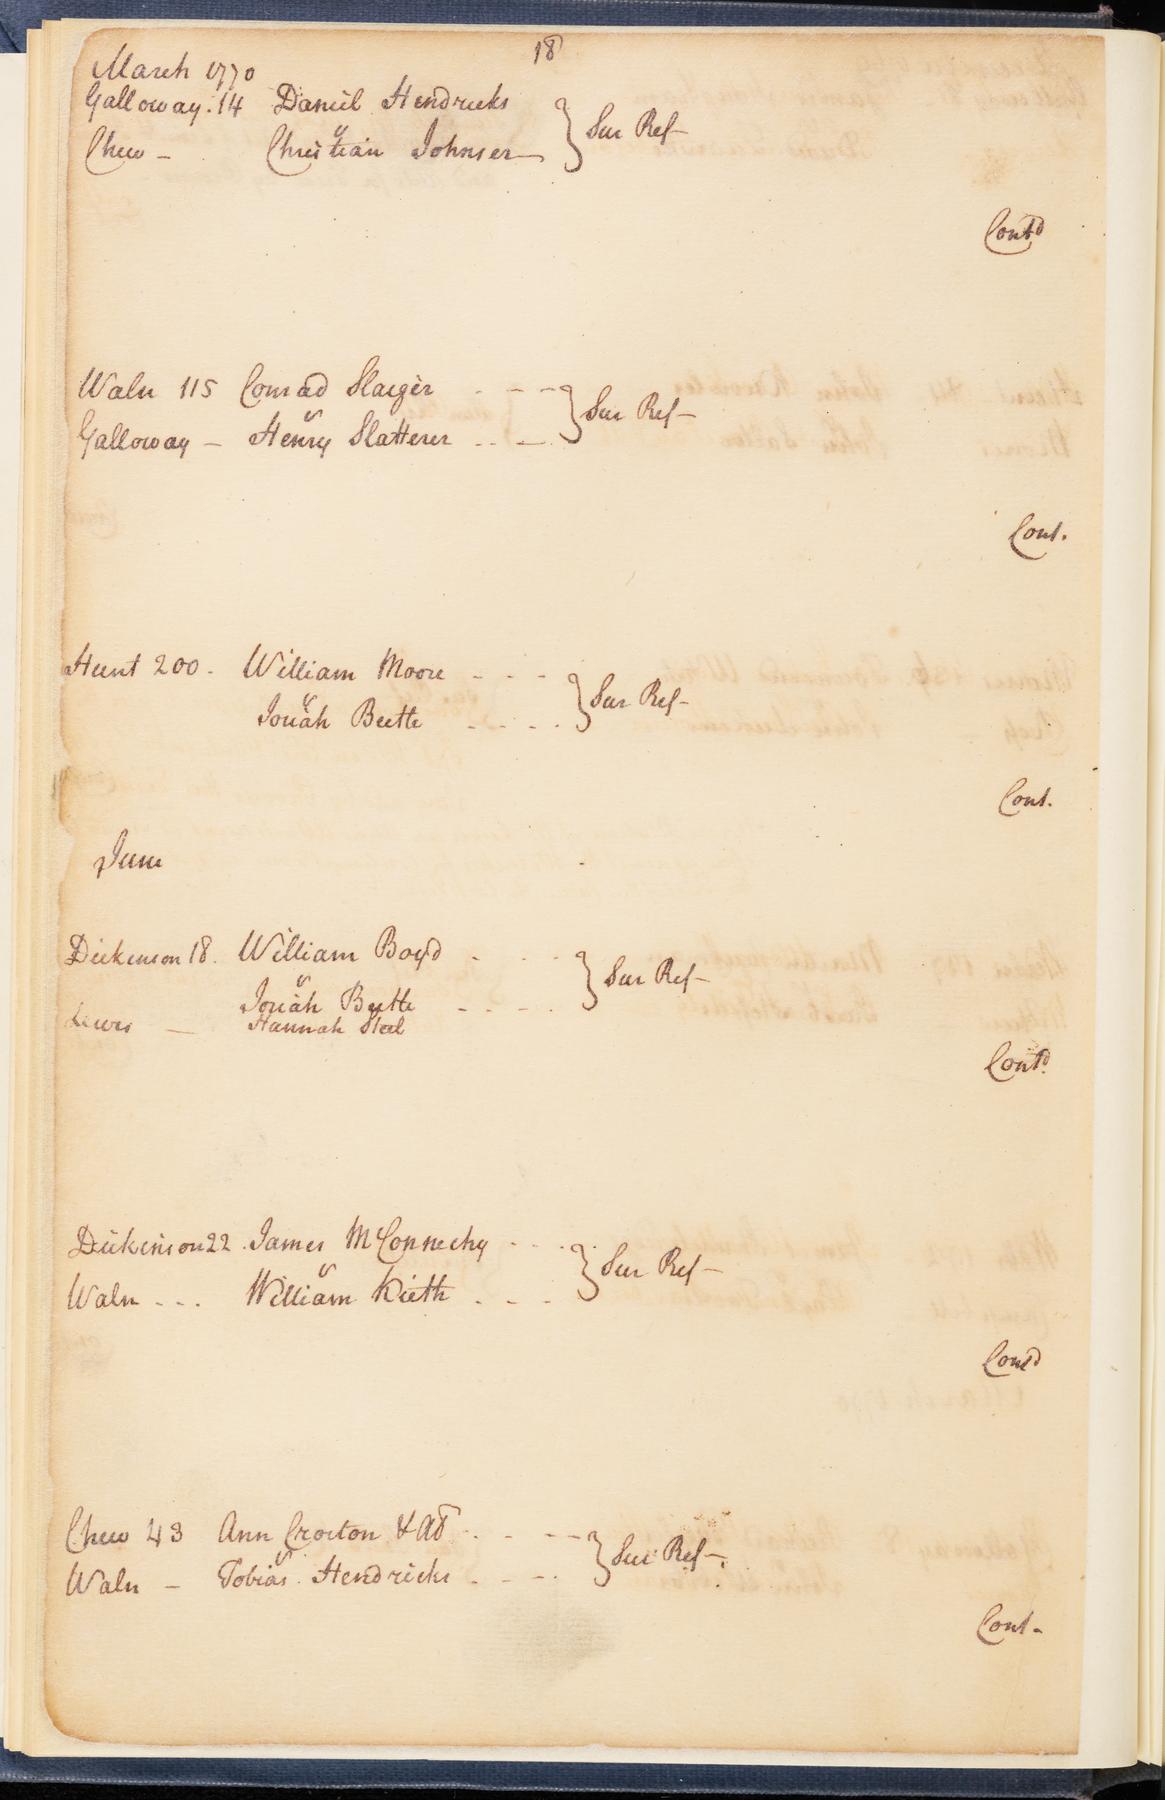 18
March 1770
Galloway. 14 Daniel Hendricks
v } Sur Ref -
Chew - Christian Johnser
Contd
Waln 115 Conrad Slaeger - - - -
v } Sur Ref -
Galloway - Henry Slatterer - - -
Cont.
Hunt 200. William Moore - - -
v } Sur Ref -
Jonah Beetle - - - -
Cont.
June
Dickenson 18. William Boyd - - -
v } Sur Ref -
Jonah Beetle - - - -
Lewis - Hannah Steel
Contd
Dickinson 22. James McConnechy - - -
v } Sur Ref -
Waln - - - William Kieth - - -
Contd
Chew 43 Ann Croxton & Al - - - -
v } Sur Ref -
Waln - Tobias Hendricks - - -
Cont -